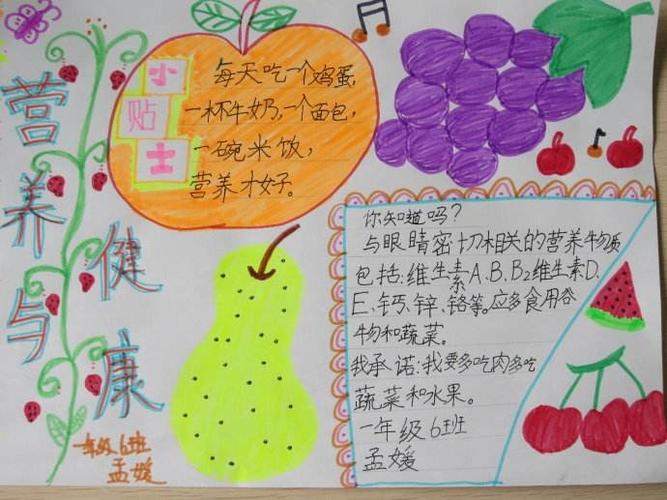 营养与
健康
一年级6班
孟媛
小
贴
士
每天吃一个鸡蛋,
一杯牛奶,一个面包,
一碗米饭,
营养才好。
你知道吗?
与眼睛密切相关的营养物质
包括:维生素A、B、B₂维生素D、
E、钙、锌、铬等。应多食用谷
物和蔬菜。
我承诺:我要多吃肉多吃
蔬菜和水果。
一年级6班
孟媛